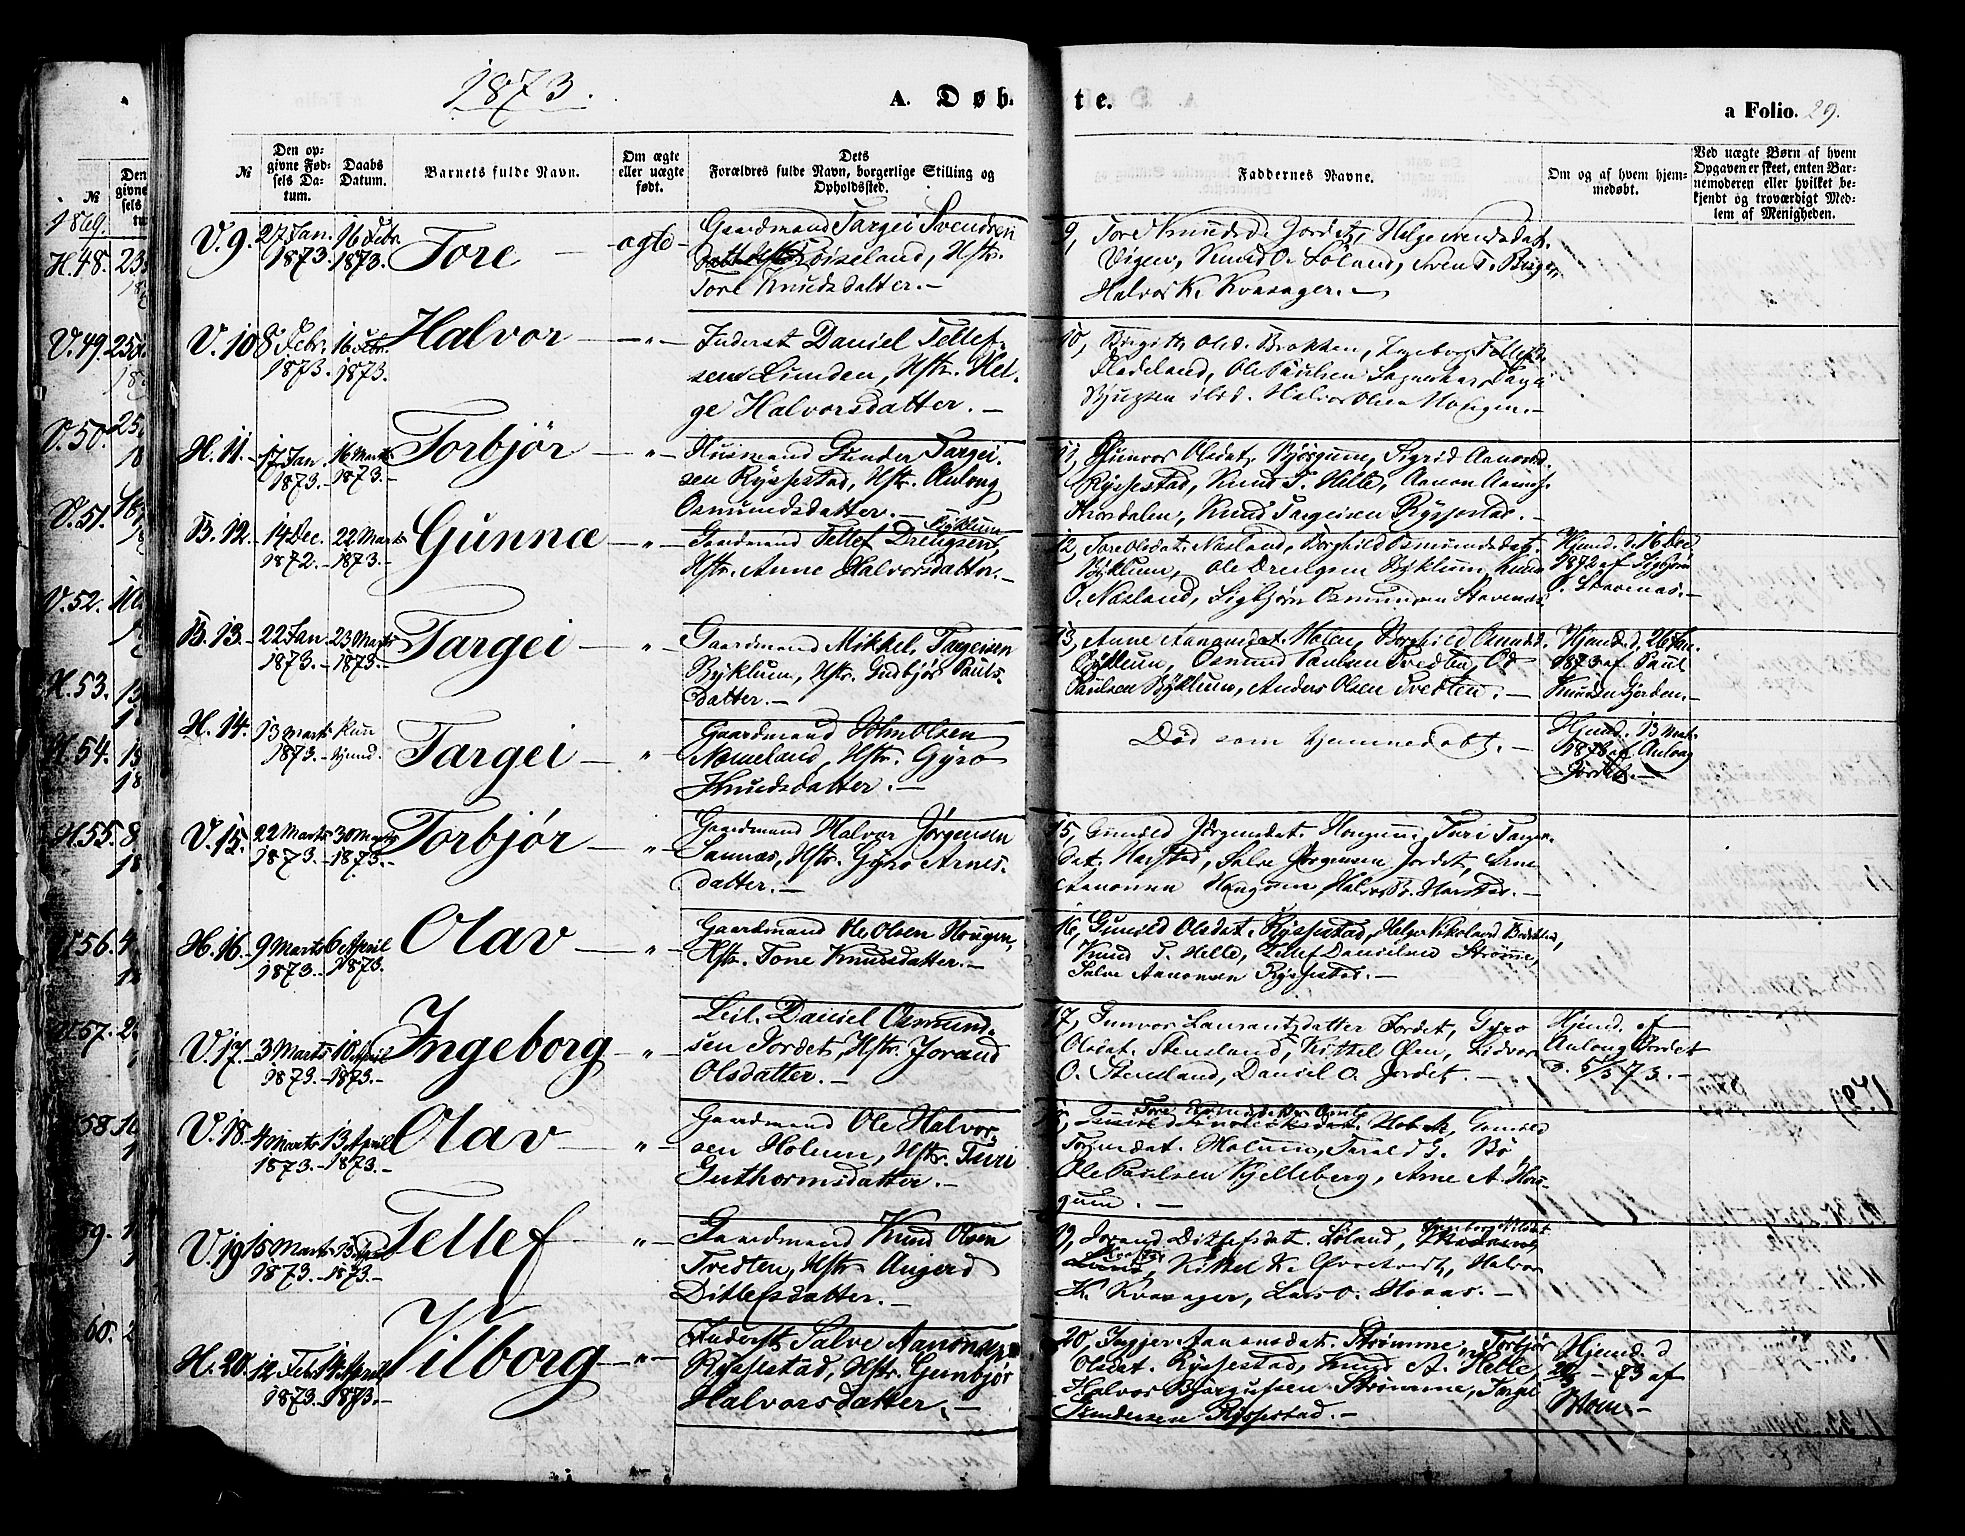 1873.
A. Døb-
te.
a Folio. 29.
№
Den op-
givne Fød-
sels Da-
tum.
Daabs
Datum.
Barnets fulde Navn.
Om ægte
eller uægte
født.
Dets
Forældres fulde Navn, borgerlige Stilling og
Opholdssted.
Faddernes Navne.
Om og af hvem hjem-
medøbt.
Ved uægte Børn af hvem
Opgaven er skeet, enten Bar-
nemoderen eller hvilket be-
kjendt og troværdigt Med-
lem af Menigheden.
V. 9.
27 Jan.
1873.
16 Febr.
1873.
Tore
ægte
Gaardmand Targei Svendsen
Røiseland, Hstr.
Tore Knudsdatter.
9, Tore Knudsd. Jordet, Helge Svendsdat.
Vigen, Knud O. Løland, Sven T.
Halvor K. Kvasager.
V. 10
8 Febr.
1873.
16 Febr.
1873.
Halvor
"
Inderst Daniel Tellef-
sen Lunden, Hstr. Hel-
ge Halvorsdatter.
10, Birgith Olsd. Brokken, Ingeborg Tellefsd.
Ole Paulsen
Halvor Olsen Hougen.
H. 11.
17 Jan.
1873.
16 Marts
1873.
Torbjør
"
Husmand Gunder Targei-
sen Rysstad, Hstr. Aulong
Osmundsdatter.
11, Gunvor Olsdat. Bjørgum, Sigrid Aanonsd.
Rysstad, Knud T. Helle, Aanon Aanons.
Knud Targeisen Rysstad.
B. 12.
14 Dec.
1872.
22 Marts
1873.
Gunnæ
"
Gaardmand Tellef Drengsen Byklum
Hstr. Anne Halvorsdatter.
12, Tore Olsdat. Næsland, Borghild Osmundsdat.
Byklum, Ole Drengsen Byklum, Knud
O. Næsland, Sigbjørn Osmundsen Stavenæs.
Hjmd. d. 16 Dec
1872 af Sigbjørn
O. Stavenæs.
B. 13.
22 Jan
1873.
23 Marts
1873.
Targei
"
Gaardmand Mikkel Targeisen
Byklum, Hstr. Gudbjør Pauls-
datter.
13, Anne Aanonsdat. Holen, Borghild Osmundsd.
Byklum, Osmund Paulsen Tvedten, Od
Paulsen Byklum, Anders Olsen Tvedten.
Hjmd. d. 26 Jan.
1873 af Paul
Knudsen Gjerden.
H. 14.
13 Marts
1873.
kun
hjmd.
Targei
"
Gaardmand John Olsen
Nomeland, Hstr. Gyro
Knudsdatter.
Død som hjemmedøbt.
Hjmd. 13 Mar.
1873 af Aulong
Jordet.
V. 15.
22 Marts
1873.
30 Marts
1873.
Torbjør
"
Gaardmand Halvor Jørgensen
Sannes, Hstr. Gyro Arnes-
datter.
15, Gunild Jørgensdat. Hougum, Turi Targei-
dat. Harstad, Salve Jørgensen Jordet, Arne
Aanonsen Hougum, Halvor B. Harstad.
H. 16.
9 Marts
1873.
6 April
1873.
Olav
"
Gaardmand Ole Olsen Hougen,
Hstr. Tone Knudsdatter.
16, Gunild Olsdat. Rysstad, Helge Nikolaid. Brokken,
Knud T. Helle, Tellef Danielsen Strømme,
Salve Aanonsen Rysstad.
V. 17.
3 Marts
1873.
10 April
1873.
Ingeborg
"
Leil. Daniel Osmund-
sen Jordet, Hstr. Jorand
Olsdatter.
17, Gunvor Laurantsdatter Jordet, Gyro
Olsdat. Stensland, Kittel Øen, Lidvor
O. Stensland, Daniel O. Jordet.
Hjmd. af
Aulong Jordet
d. 5/3 73.
V. 18.
4 Marts
1873.
13 April
1873.
Olav
"
Gaardmand Ole Halvor-
sen Holum, Hstr. Turi
Guthormsdatter.
18, Gunild
Holum, Tarald G. Bø
Ole Paulsen Kjelleberg, Arne A. Hou-
gum.
V. 19
15 Marts
1873.
13 April
1873.
Tellef
"
Gaardmand Knud Olsen
Tvedten, Hstr. Angerd
Ditlefsdatter.
19, Jorand Ditlefsdat. Løland, Ingeborg
Kittel K. Halvor
K. Kvasager, Lars O. Homs.
H. 20.
12 Febr.
1873.
14 April
1873.
Vilborg
"
Inderst Salve Aanonsen
Rysstad, Hstr. Gunbjør
Halvorsdatter.
20, Ingjer Aanonsdat. Strømme, Torbjør
Olsdat. Rysstad, Knud A. Helle,
Halvor Bjørgufsen Strømme, Targei
Gundersen Rysstad.
Hjmd. d
73 af
1869.
H. 48.
V. 49.
V. 50.
V. 51.
V. 52.
H. 53.
H. 54.
H. 55.
56.
57.
58.
59.
60.